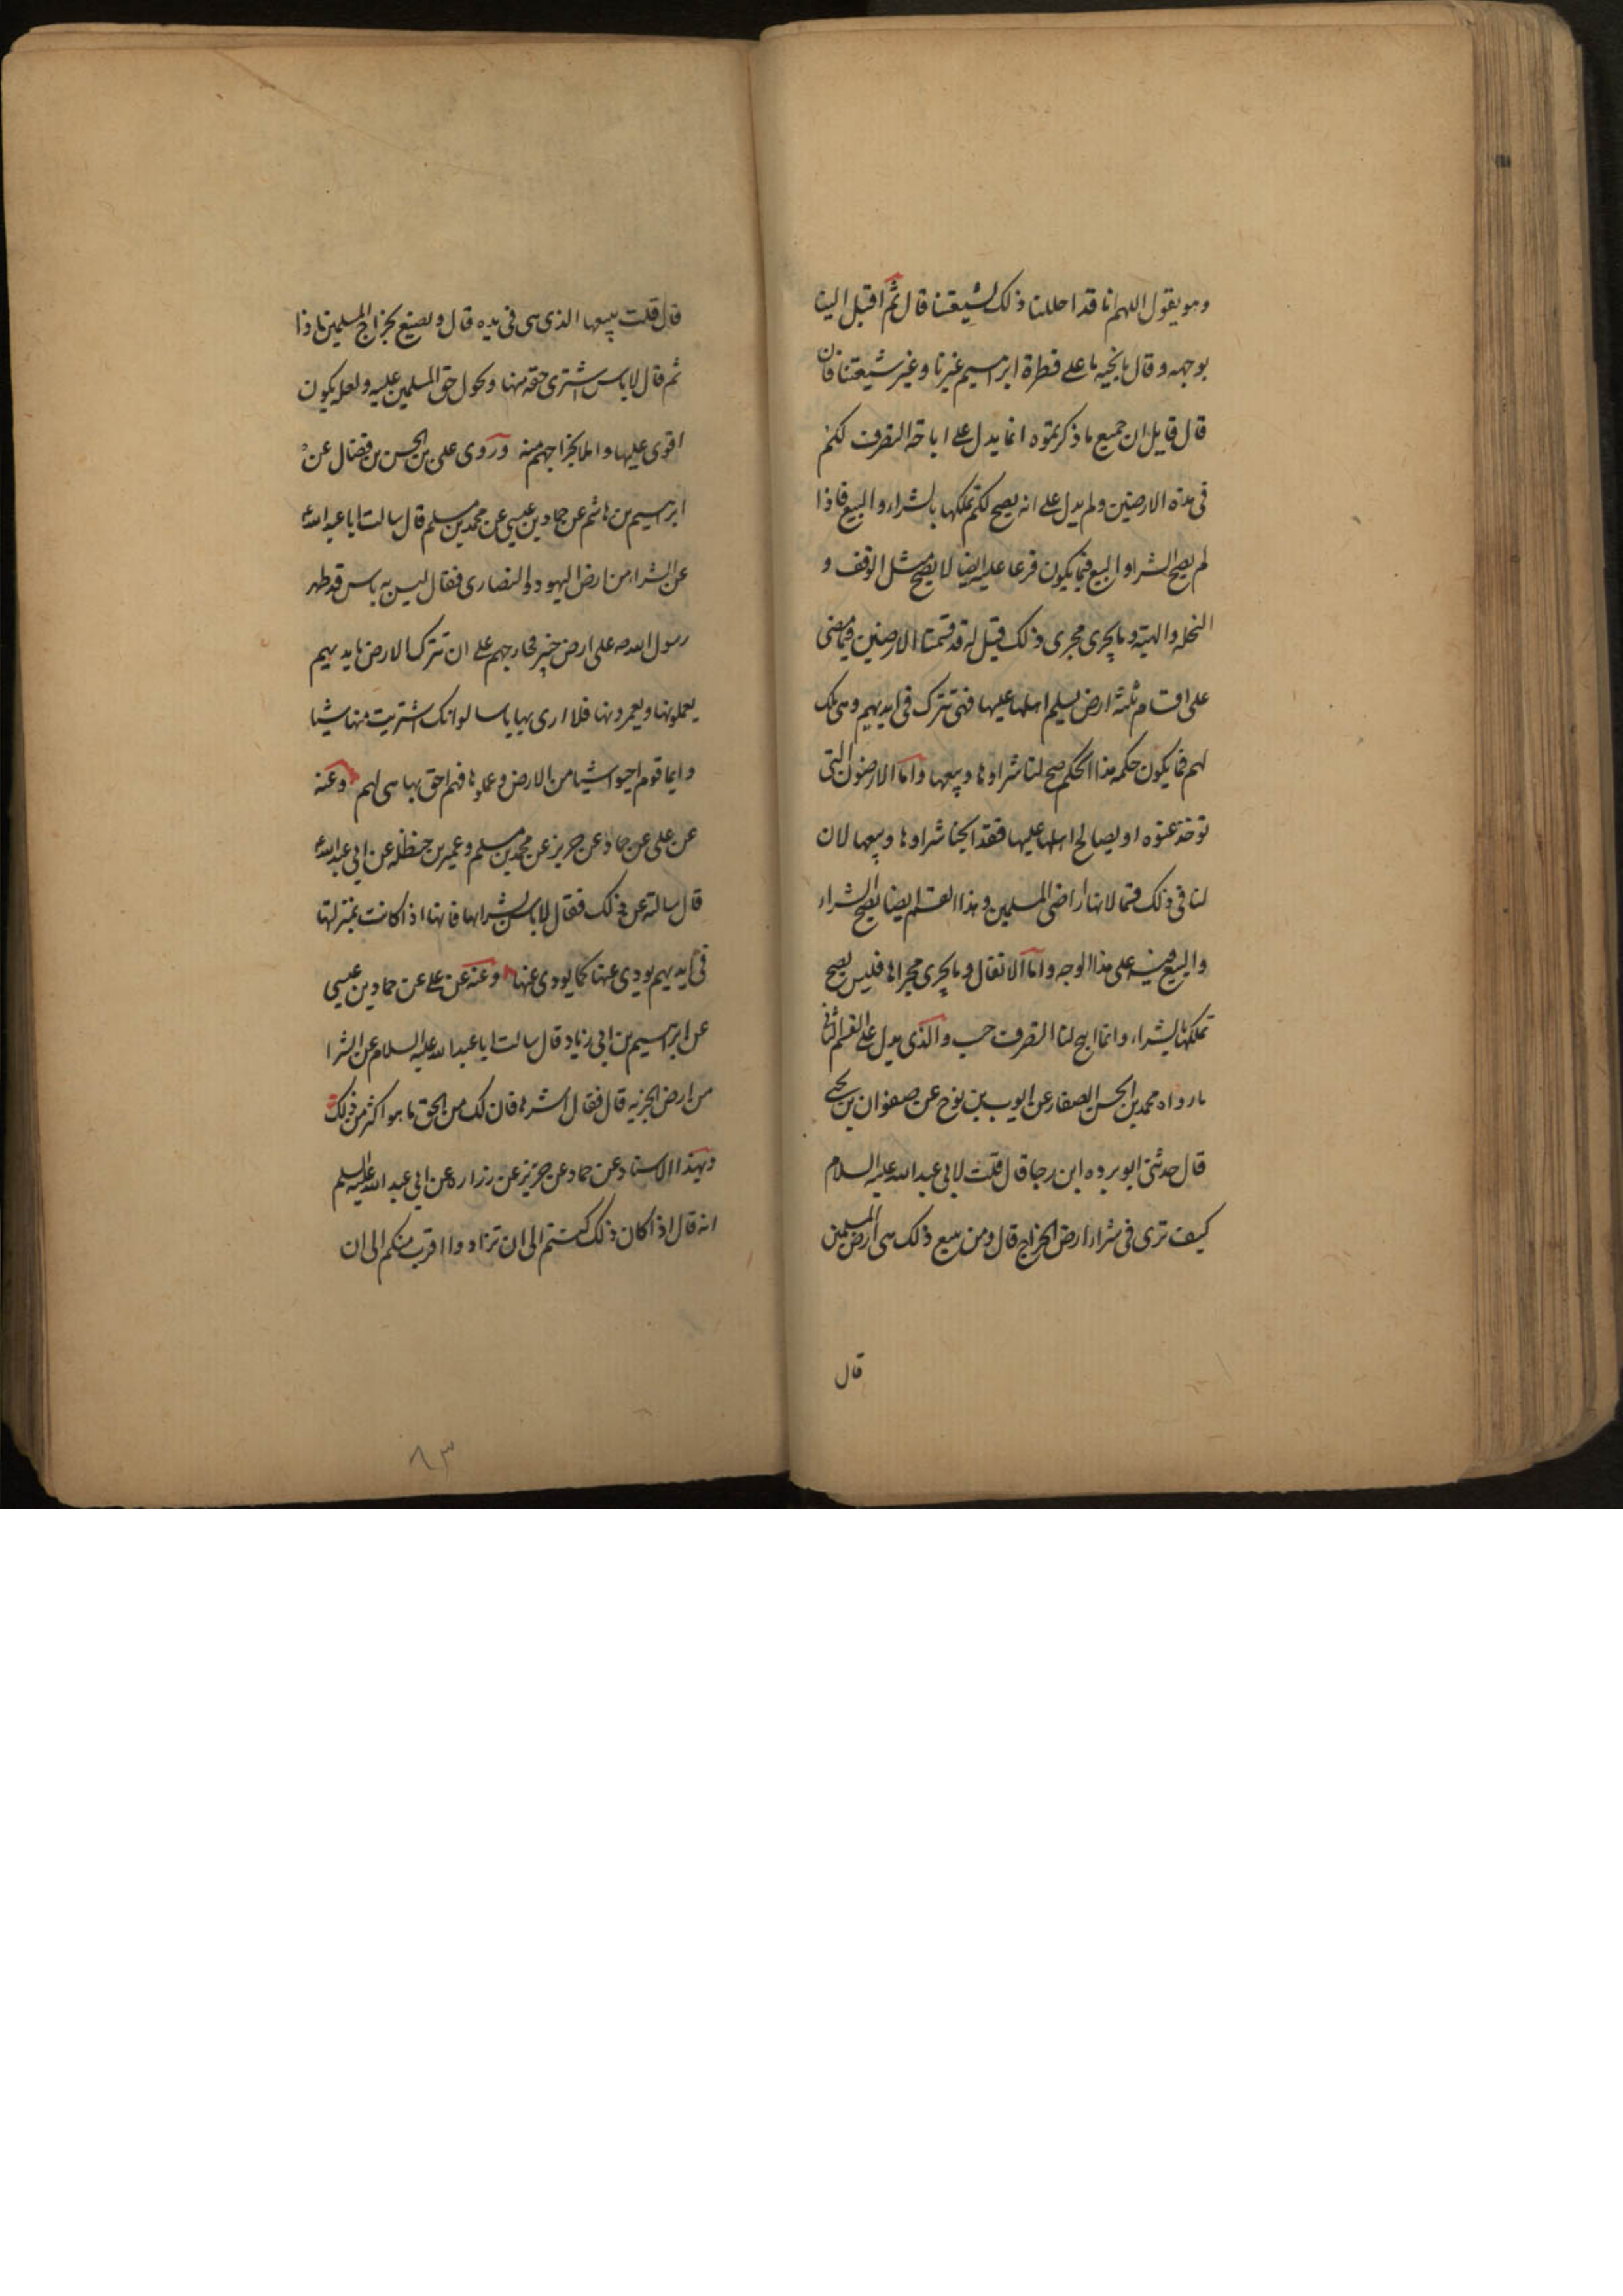 وهو يقول اللهم انا قد احللنا ذلك لشيعتنا قال ثم اقبل الينا
بوجهه وقال يا نجيه ما على فطرة ابرهيم غيرنا وغير شيعتنا فان
قال قايل ان جميع ما ذكرتموه انما يدل على اباحة التصرف لكم
فى هذه الارضين ولم يدل على انه يصح لكم تملكها بالشراء والبيع فاذا
لم يصح الشراء والبيع فما يكون فرعا عليه ايضا لا يصح مثل الوقف و
النحله والهبة وما يجرى مجرى ذلك قيل له قد قسمنا الارضين فيما مضى
على اقسام ثلثة ارض يسلم اهلها عليها فهى تترك فى ايديهم وهى ملك
لهم فما يكون حكمه هذا الحكم صح لنا شراوها وبيعها واما الارضون التى
توخذ عنوه او يصالح اهلها عليها فقد ابحنا شراوها وبيعها لان
لنا فى ذلك قسما لانها اراضى المسلمين وهذا القسم ايضا يصح الشراء
والبيع فيه على هذا الوجه واما الانفال وما يجرى مجراها فليس يصح
تملكها بالشراء وانما ابيح لنا التصرف حسب والذى يدل على القسم الثانى
ما رواه محمد بن الحسن الصفار عن ايوب بن نوح عن صفوان بن يحيى
قال حدثنى ابو برده ابن رجا قال قلت لابى عبد الله عليه السلام
كيف ترى فى شراء ارض الخراج قال ومن يبيع ذلك هى ارض المسلمين
قال
قال قلت يبيعها الذى هى فى يده قال ويصنع بخراج المسلمين ماذا
ثم قال لا باس اشترى حقه منها ويحول حق المسلمين عليه ولعله يكون
اقوى عليها واملا بخراجهم منه وروى على بن الحسن بن فضال عن
ابرهيم بن هاشم عن حماد بن عيسى عن محمد بن مسلم قال سالت ابا عبد الله ع
عن الشراء من ارض اليهود والنصارى فقال ليس به باس قد ظهر
رسول الله صه على ارض خيبر فخارجهم على ان تترك الارض بايديهم
يعملونها ويعمرونها فلا ارى بها باسا لو انك اشتريت منها شيا
وايما قوم احيوا شيا من الارض وعملوها فهم احق بها هى لهم وعنه
عن على عن حماد عن حريز عن محمد بن مسلم وعمر بن حنظله عن ابى عبد الله ع
قال سالته عن ذلك فقال لا باس بشرايها فانها اذا كانت بمنزلتها
فى ايديهم يودى عنها كما يودى عنها وعنه عن على عن حماد بن عيسى
عن ابرهيم بن ابى زياد قال سالت ابا عبد الله عليه السلام عن الشرا
من ارض الجزيه قال فقال اشترها فان لك من الحق ما هو اكثر من ذلك
وبهذا الاسناد عن حماد عن حريز عن زراره عن ابى عبد الله عليه السلم
انه قال اذا كان ذلك كنتم الى ان تزادوا اقرب منكم الى ان
٨٣